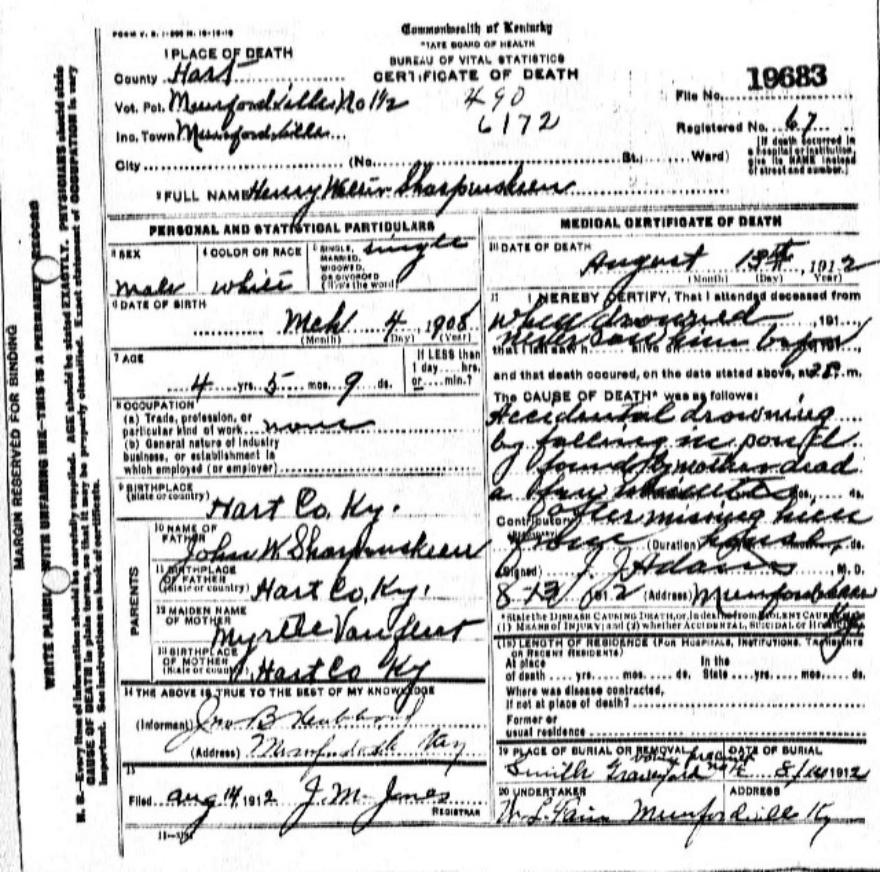 FORM V. S. 1-
Commonwealth of Kentucky
STATE BOARD OF HEALTH
BUREAU OF VITAL STATISTICS
CERTIFICATE OF DEATH
1 PLACE OF DEATH
County Hart
Vot. Pct. Munfordville No 1½
490
File No. 19683
Inc. Town Munfordville
6172
Registered No. 67
City (No. St. Ward)
[If death occurred in a hospital or institution, give its NAME instead of street and number.]
2 FULL NAME Henry
PERSONAL AND STATISTICAL PARTICULARS
3 SEX
male
4 COLOR OR RACE
white
5 SINGLE, MARRIED, WIDOWED, OR DIVORCED (Write the word)
single
6 DATE OF BIRTH
Mch 4, 1908
(Month) (Day) (Year)
7 AGE
4 yrs. 5 mos. 9 ds.
If LESS than 1 day hrs. or min.?
8 OCCUPATION
(a) Trade, profession, or particular kind of work none
(b) General nature of industry business, or establishment in which employed (or employer)
9 BIRTHPLACE
(State or country) Hart Co. Ky.
PARENTS
10 NAME OF FATHER
John W
11 BIRTHPLACE OF FATHER
(State or country) Hart Co, Ky.
12 MAIDEN NAME OF MOTHER
Myrtle
13 BIRTHPLACE OF MOTHER
(State or country) Hart Co Ky
14 THE ABOVE IS TRUE TO THE BEST OF MY KNOWLEDGE
(Informant) Jno B
(Address) Ky
15
Filed Aug 14, 1912 J. M. Jones
REGISTRAR
MEDICAL CERTIFICATE OF DEATH
16 DATE OF DEATH
August 13th, 1912
(Month) (Day) Year)
17 I HEREBY CERTIFY, That I attended deceased from
when drowned 191
never saw him before
that I last saw h alive on 191
and that death occured, on the date stated above, at m.
The CAUSE OF DEATH* was as follows:
Accidental drowning
by falling in pond
found by mother dead
a few minutes
Contributory after missing him
from house
(Duration) ds.
(Signed) J. J. Adams M. D.
8-13 1912 (Address) Munfordville Ky.
*State the DISEASE CAUSING DEATH, or, in deaths from VIOLENT CAUSES
(1) MEANS OF INJURY; and (2) whether ACCIDENTAL, SUICIDAL or
(18) LENGTH OF RESIDENCE (FOR HOSPITALS, INSTITUTIONS, TRANSIENTS OR RECENT RESIDENTS)
At place of death yrs. mos. ds.
In the State yrs. mos. ds.
Where was disease contracted, if not at place of death?
Former or usual residence
19 PLACE OF BURIAL OR REMOVAL
Smith Graveyard
DATE OF BURIAL
8/14 1912
20 UNDERTAKER
W. L. Fair
ADDRESS
Munfordville Ky
MARGIN RESERVED FOR BINDING
WRITE PLAINLY WITH UNFADING INK—THIS IS A PERMANENT RECORD
N. B.—Every item of information should be carefully supplied. AGE should be stated EXACTLY. PHYSICIANS should state
CAUSE OF DEATH in plain terms, so that it may be properly classified. Exact statement of OCCUPATION is very
important. See instructions on back of certificate.